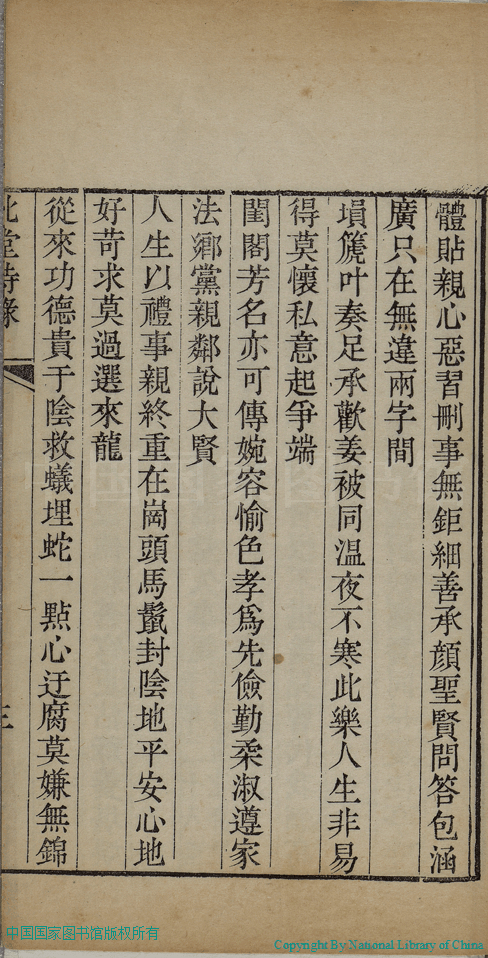 體貼親心惡習刪事無鉅細善承顏聖賢問答包涵
廣只在無違兩字間
塤篪叶奏足承歡姜被同溫夜不寒此樂人生非易
得莫懷私意起爭端
閨閣芳名亦可傳婉容愉色孝爲先儉勤柔淑遵家
法鄉黨親鄰說大賢
人生以禮事親終重在崗頭馬鬣封陰地平安心地
好苛求莫過選來龍
從來功德貴于陰救蟻埋蛇一點心迂腐莫嫌無錦
北堂詩緣
三
中国国家图书馆版权所有
Copyright By National Library of China